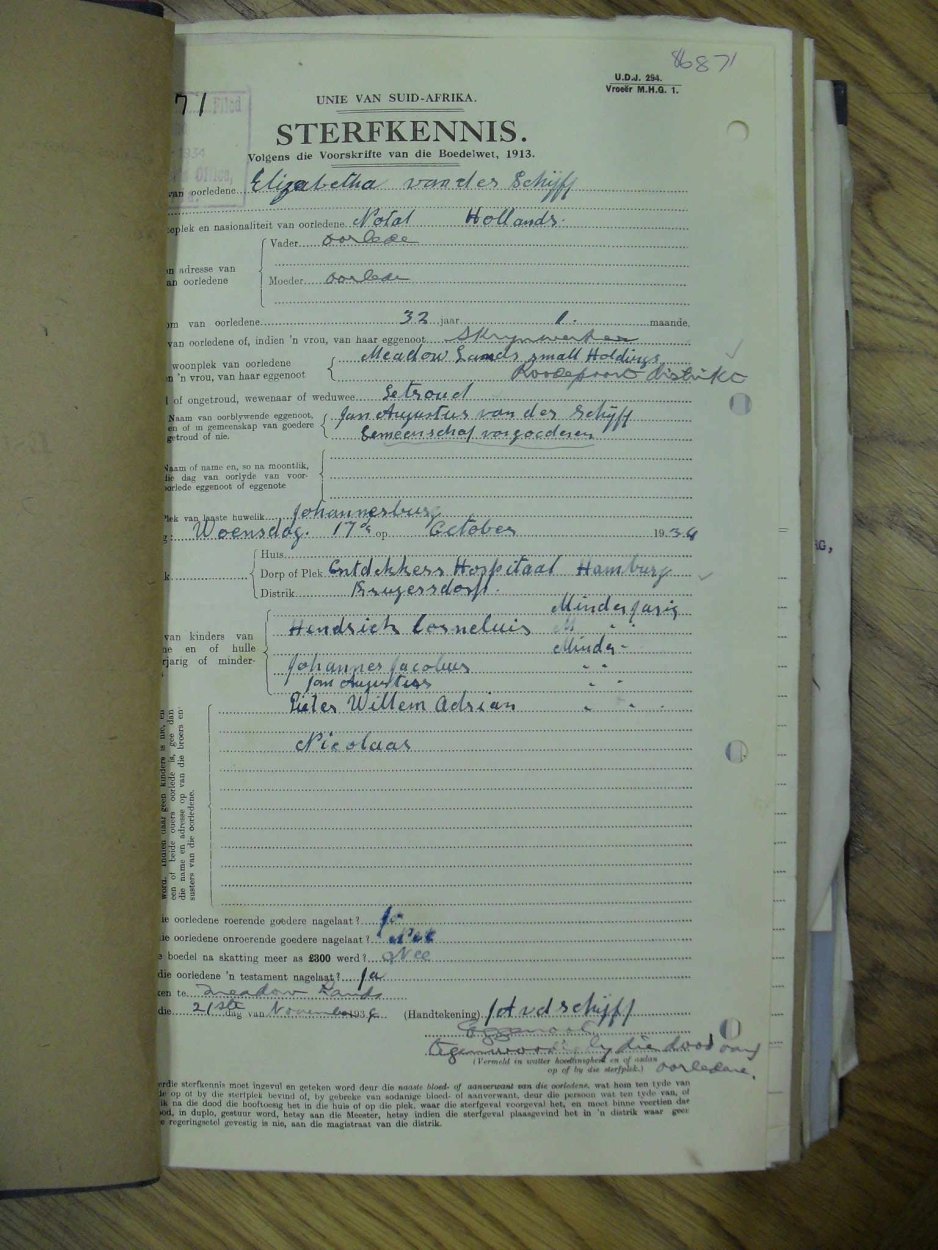 86871
U.D.J. 294.
Vroeër M.H.G. 1.
71
UNIE VAN SUID-AFRIKA.
STERFKENNIS.
Volgens die Voorskrifte van die Boedelwet, 1913.
van oorledene Elizabetha van der Schijff
eplek en nasionaliteit van oorledene Notal Hollands.
Vader oorlede
n adresse van
an oorledene
Moeder oorlede
om van oorledene 32 jaar 1. maande.
van oorledene of, indien 'n vrou, van haar eggenoot Skrynwerker
woonplek van oorledene
en 'n vrou, van haar eggenoot
Meadow Lands small Holdings
Roodepoort distrikt
of ongetroud, wewenaar of weduwee Getroud
Naam van oorblywende eggenoot,
en of in gemeenskap van goedere
getroud of nie.
Jan Augustus van der Schijff
Gemeenschaf van goederen
Naam of name en, so na moontlik,
die dag van oorlyde van voor-
oorlede eggenoot of eggenote
Plek van laaste huwelik Johannesburg
g: Woensdag. 17de op October 1934
Huis
k Dorp of Plek Entdekkers Hospitaal Hamburg
Distrik Krugersdorp.
Minderjarig
van kinders van
ne en of hulle
rjarig of minder-
Hendrich Corneluis M " "
Minder "
Johannes Jacobus " "
Jan Augustus " "
Pieter Willem Adrian " " "
Nicolaas
word. Indien daar geen kinders is nie, en
een of beide ouers oorlede is, gee dan
die name en adresse op van die broers en
susters van die oorledene.
ie oorledene roerende goedere nagelaat? Ja
ie oorledene onroerende goedere nagelaat? Nee
e boedel na skatting meer as £300 werd? Nee
die oorledene 'n testament nagelaat? Ja
ken te Meadow Lands
die 21ste dag van November 1934 (Handtekening) JAvdSchijff
Eggenoot
tegenwoordig by die dood van
(Vermeld in watter hoedanigheid en of aldan
op of by die sterfplek.) oorledene.
erdie sterfkennis moet ingevul en geteken word deur die naaste bloed- of aanverwant van die oorledene, wat hom ten tyde van
de op of by die sterfplek bevind of, by gebreke van sodanige bloed- of aanverwant, deur die persoon wat ten tyde van, of
ik na die dood die hooftoesig het in die huis of op die plek, waar die sterfgeval voorgeval het, en moet binne veertien dae
od, in duplo, gestuur word, hetsy aan die Meester, hetsy indien die sterfgeval plaasgevind het in 'n distrik waar geen
e regeringsetel gevestig is nie, aan die magistraat van die distrik.